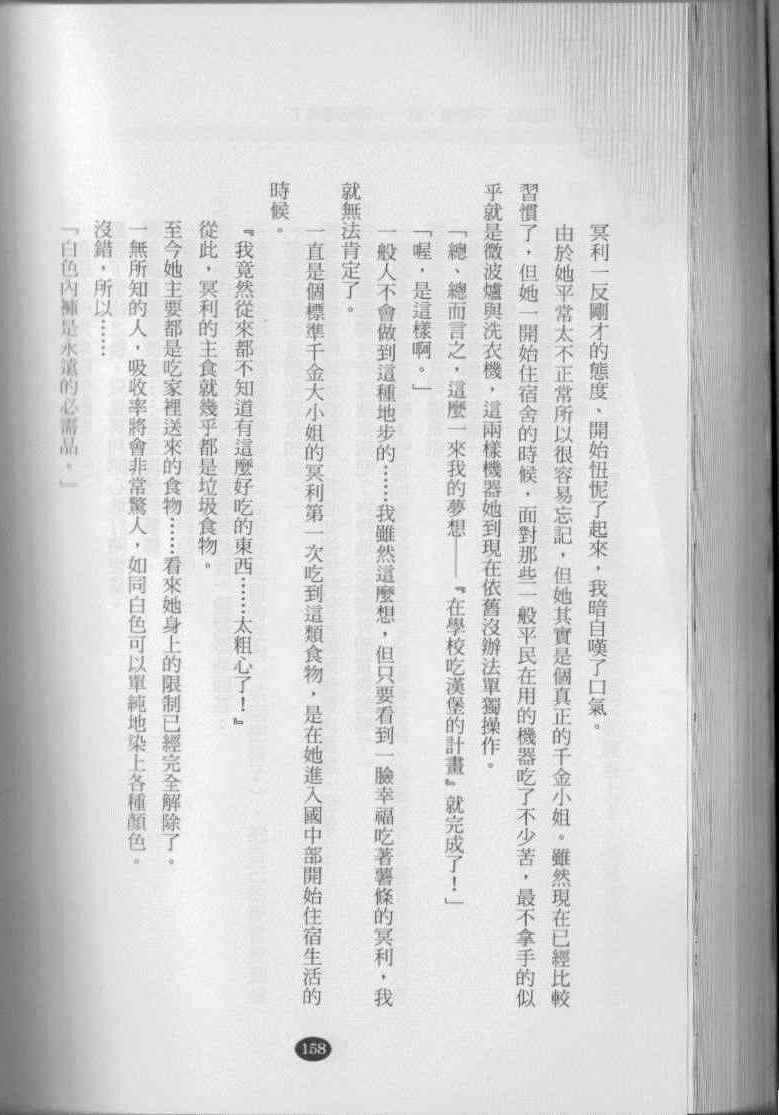 冥利一反剛才的態度、開始忸怩了起來，我暗自嘆了口氣。
由於她平常太不正常所以很容易忘記，但她其實是個真正的千金小姐。雖然現在已經比較
習慣了，但她一開始住宿舍的時候，面對那些一般平民在用的機器吃了不少苦，最不拿手的似
乎就是微波爐與洗衣機，這兩樣機器她到現在依舊沒辦法單獨操作。
「總、總而言之，這麼一來我的夢想——『在學校吃漢堡的計畫』就完成了！」
「喔，是這樣啊。」
一般人不會做到這種地步的……我雖然這麼想，但只要看到一臉幸福吃著薯條的冥利，我
就無法肯定了。
一直是個標準千金大小姐的冥利第一次吃到這類食物，是在她進入國中部開始住宿生活的
時候。
『我竟然從來都不知道有這麼好吃的東西……太粗心了！』
從此，冥利的主食就幾乎都是垃圾食物。
至今她主要都是吃家裡送來的食物……看來她身上的限制已經完全解除了。
一無所知的人，吸收率將會非常驚人，如同白色可以單純地染上各種顏色。
沒錯，所以……
「白色內褲是永遠的必需品。」
158